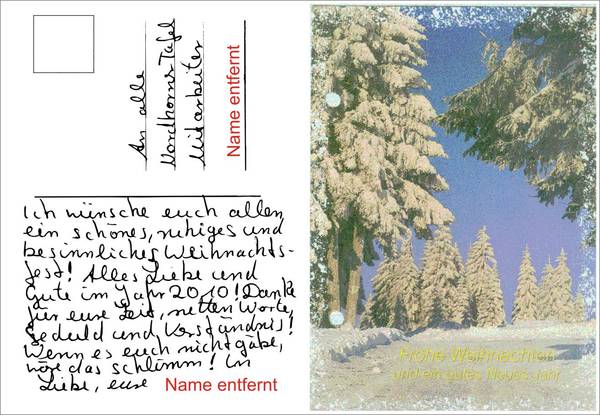 An alle
Nordhorner Tafel
Mitarbeiter
Name entfernt
Ich wünsche euch allen
ein schönes, ruhiges und
besinnliches Weihnachts-
fest! Alles Liebe und
Gute im Jahr 2010! Danke
für eure Zeit, netten Worte,
Geduld und Verständnis!
Wenn es euch nicht gäbe,
wäre das schlimm! In
Liebe, eure Name entfernt
Frohe Weihnachten
und ein gutes Neues Jahr